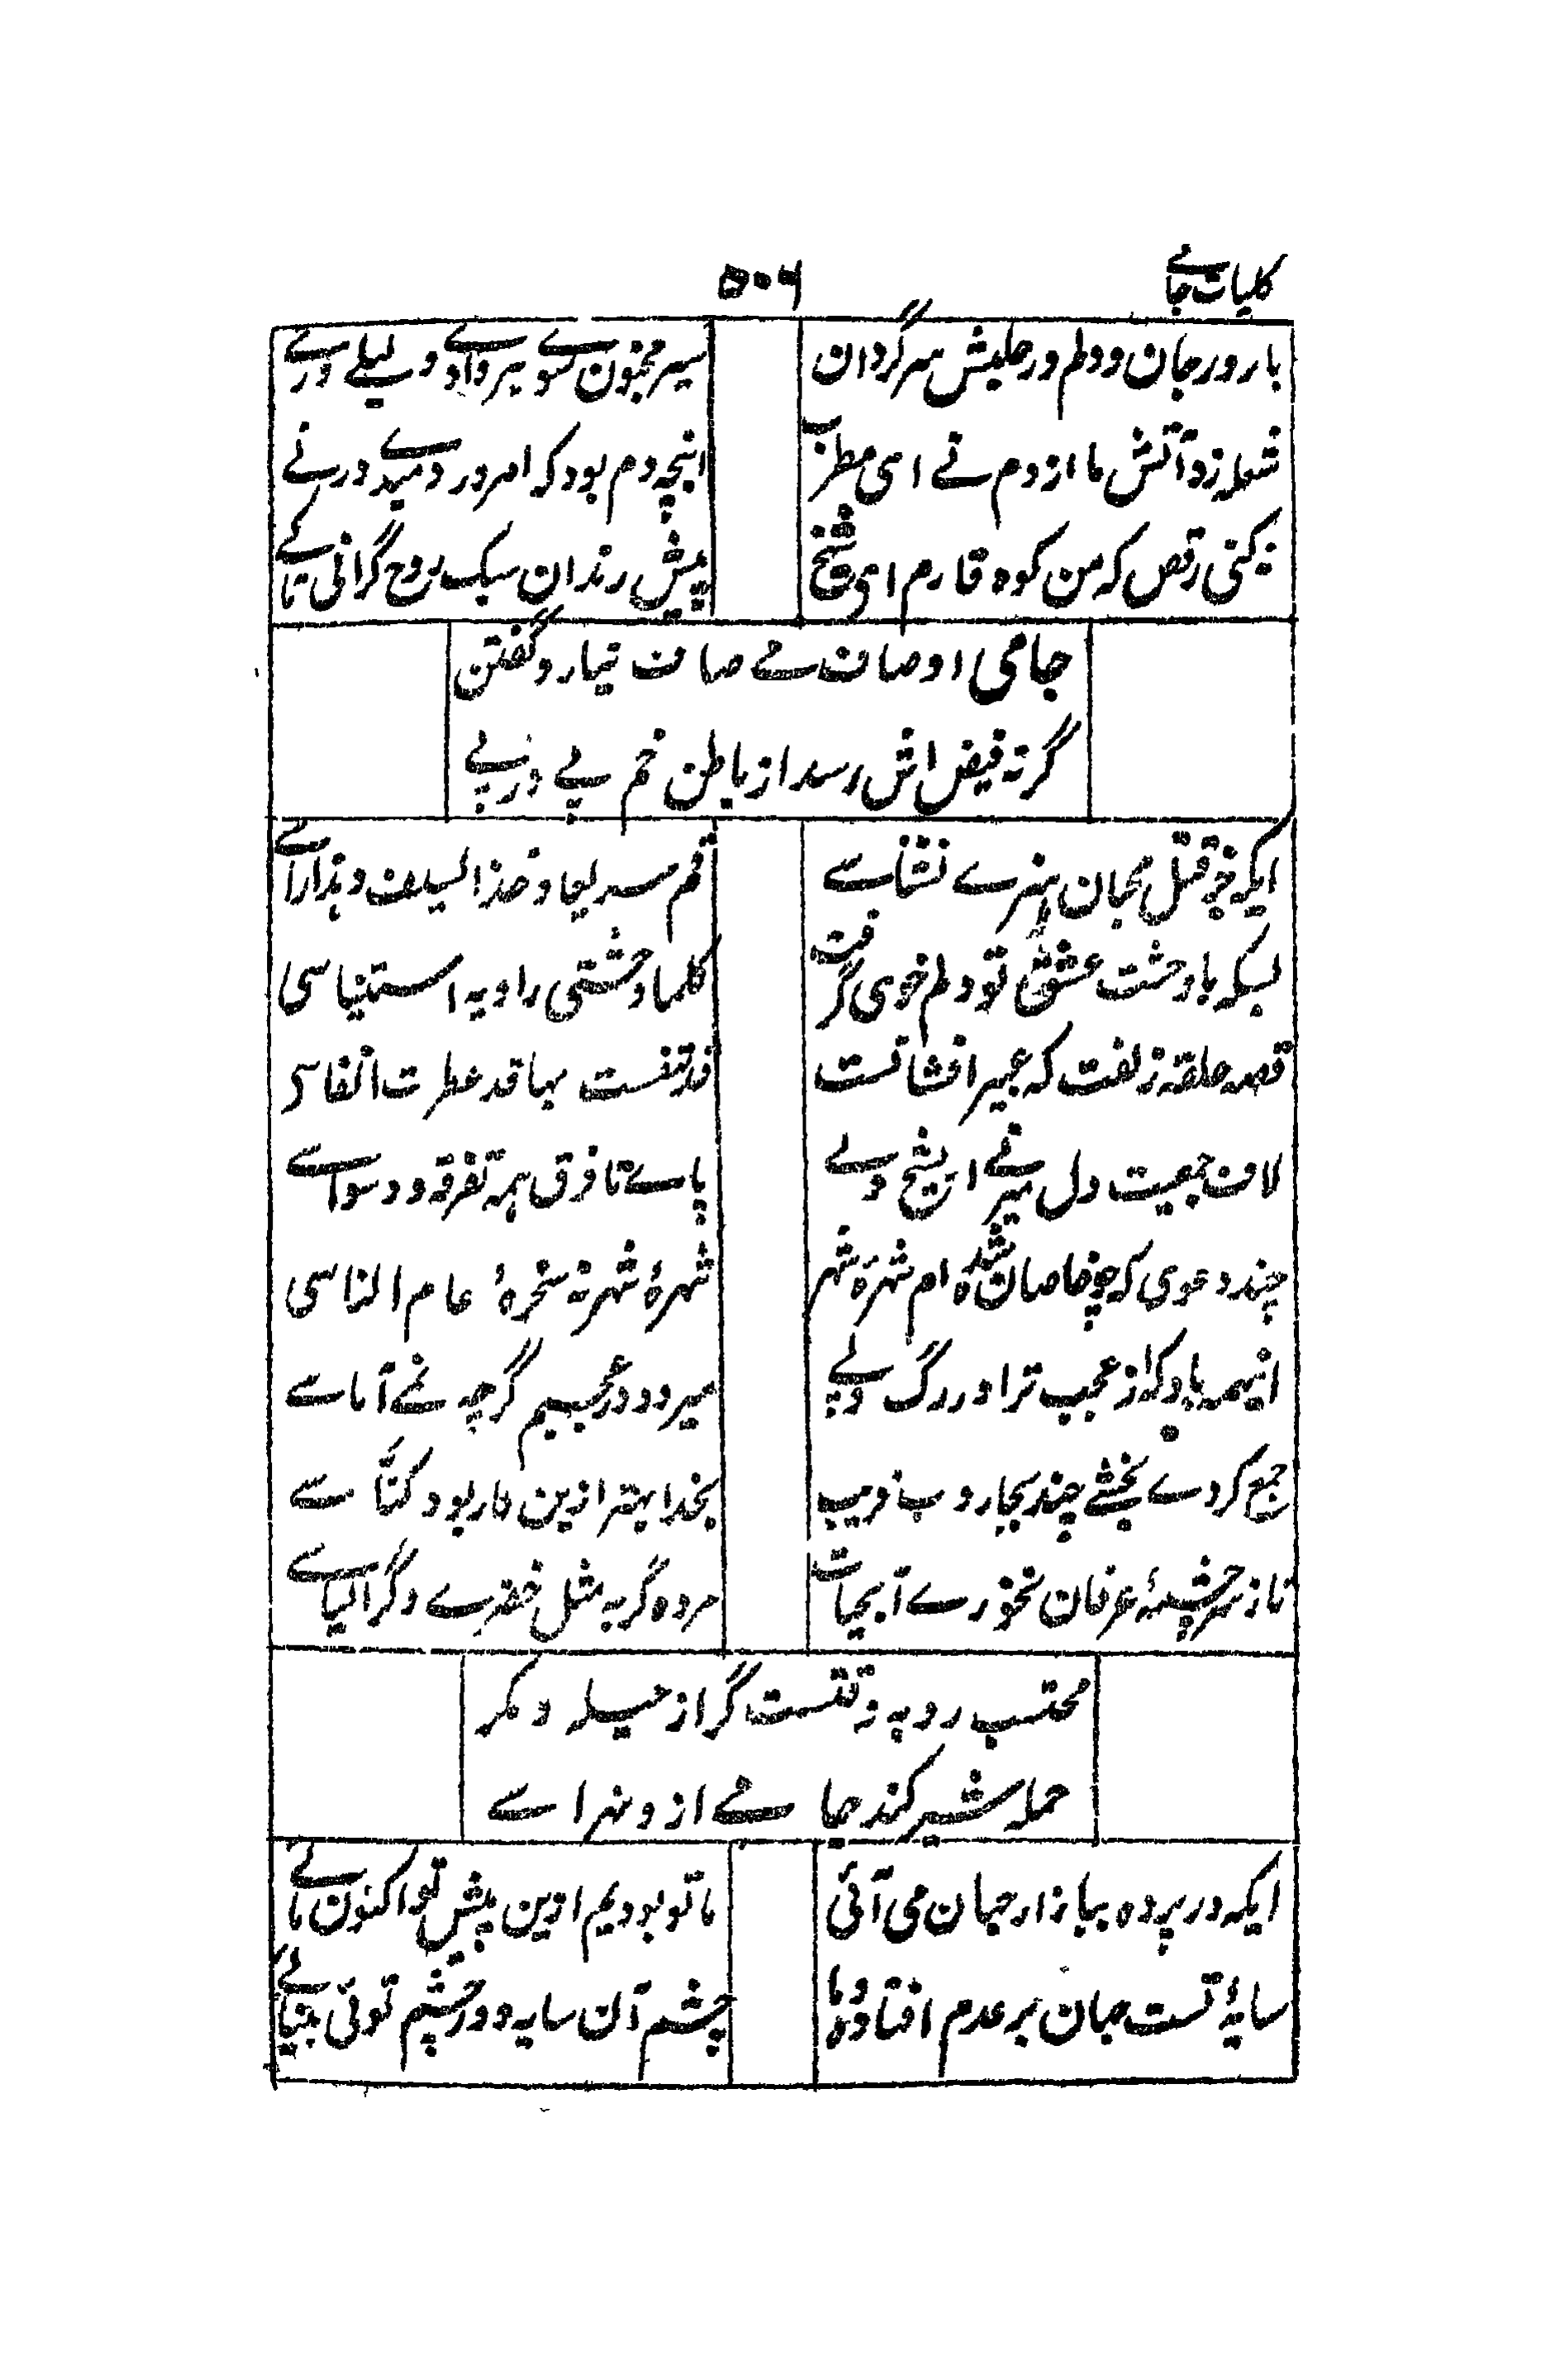 کلیات جامے
۵۰۶
یار در جان و دلم در طلبش سرگردان
سیر مجنون سوے ہر وادے و لیلے در حے
شعلہ زد آتش ما از دم نے ای مطرب
اینچہ دم بود کہ امروز دمیدے در نے
نکنی رقص کہ من کوہ وقارم ای شیخ
پیش رندان سبک روح گرانی تا کے
جامی اوصاف مے صاف نیارد گفتن
گر نہ فیض اش رسد از باطن خم پے در پے
ایکہ جز قتل محبان ہنرے نشناسے
قم سریعا و خذ السیف و ہذا راسے
بسکہ با وحشت عشق تو دلم خوی گرفت
کلما وحشتی راو بہ استیناسی
قصہ حلقہ زلفت کہ عبیر افشانست
قد تنفست بہا قد عطرت انفاسی
لاف جمعیت دل میزنے ایشیخ ولے
پاے تا فرق ہمہ تفرقہ و وسواسے
چند دعوی کہ چو خاصان شدہ ام شہرۂ شہر
شہرۂ شہر نہ سخرۂ عام الناسی
اینہمہ باد کہ از عجب ترا در رگ و پے
میرود در عجبیم گرچہ نمے آماسے
جمع کردے خبثے چند بجاروب فریب
بخدا بہتر ازین کار بود کناسے
تا ز سرچشمۂ عرفان نخورے آبحیات
مردہ گر بہ مثل خضرے و گر الیاسے
محتسب رو بہ زقتست گر از حیلہ و مکر
حملہ شیر کند جامے ازو نہراسے
ایکہ در پردہ ببازار جہان می آئی
ما تو بودیم ازین پیش تو اکنون مائے
سایۂ تست جہان بر عدم افتادہ و ما
چشم آن سایہ و در چشم توئی بینائے